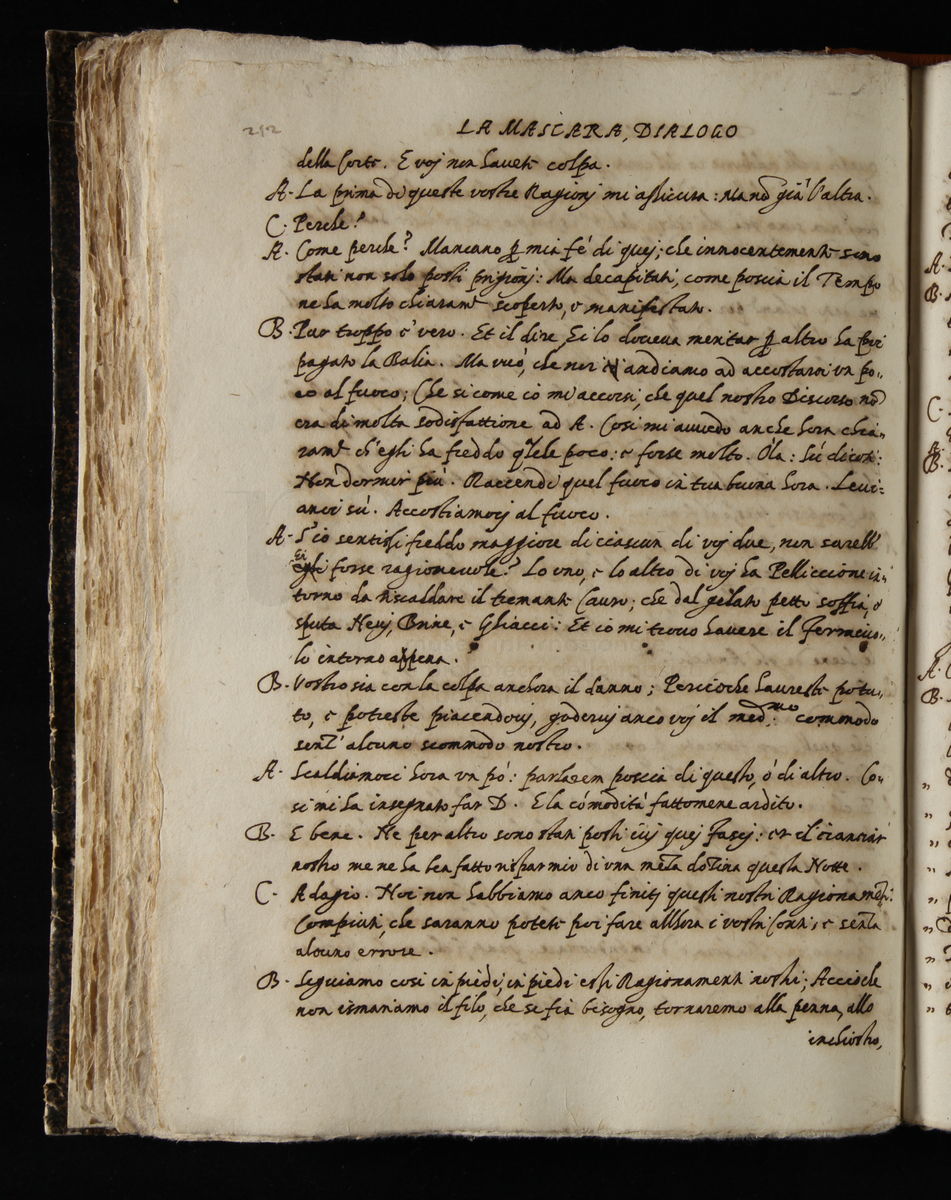 252
LA MASCARA, DIALOGO
della Corte. E voj non havete colpa.
A. La prima di queste vostre Ragionj mi assicura: Ma nō già l'altra.
C. Perche?
A. Come perche? Mancano p̱ mia fé di quej; che innocentemente sono
stati non solo posti prigionj: Ma decapitati, come poscia il Tempo
ne ha molto chiaram.te scoperto, e manifestato.
B. Pur troppo è vero. Et il dire, Ei lo doveva meritar p̱ altro ha poi
pagato la Balia. Ma vuò, che noi andiamo ad accostarci un po=
co al fuoco; Che si come io mi accorsi, che quel nostro Discorso nō
era di molta sodisfattione ad A. Cosi mi avvedo anche hora chia=
ram.te ch'egli ha freddo q̄lche poco: e forse molto. Ola: Sù dicoti:
Non dormir più. Raccendi quel fuoco in tua buona hora. Levi=
anci sù. Accostiamocj al fuoco.
A. S'io sentissi freddo maggiore di ciascun di voj due, non sareb̄b
Ei
forse ragionevole? Lo uno, e lo altro di voj ha Pelliccione in=
torno da riscaldare il tremante Cauro; che dal gelato petto soffia, e
sputa Nevj, Brine, e Ghiacci: Et io mi trovo havere il Ferraiuo=
lo intorno appena.
B. Vostro sia con la colpa anchora il danno; Percioche haureste potu=
to, e potreste piacendovj, godervj anco voj il med.mo commodo
senz'alcuno scommodo nostro.
A. Scaldiamoci hora un pò: parlarem poscia di questo, ò di altro. Co=
si mi ha insegnato far D. E la cōmodità fattomene ardito.
B. E bene. Ne per altro sono stati posti ivj quej Fascj: et il cianciar
nostro me ne ha ben fatto risparmio di una meza dozina questa Notte.
C. Adagio. Noi non habbiamo anco finitj questi nostri Ragionamēti.
Compiuti, che saranno potete poi fare allhora i vostri Conti, e senza
alcuno errore.
B. Seguiamo cosi in piedi, in piedi essi Ragionamenti nostri; Accioche
non rimaniamo il filo, che se fia bisogno, tornaremo alla penna, allo
inchiostro,